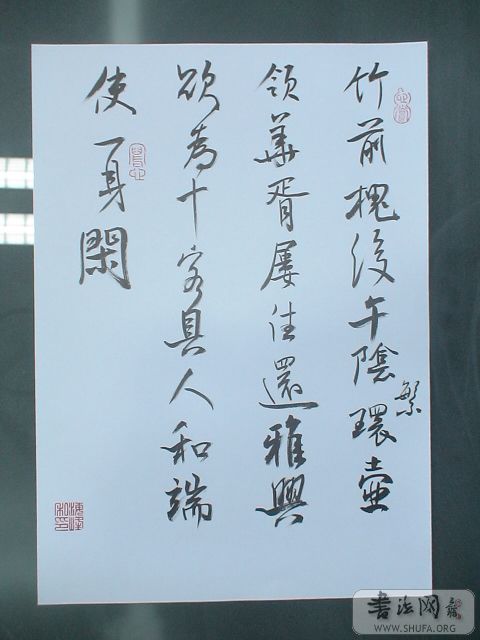 竹前槐後午陰環壺
繁
領華胥屢往還雅興
欲為十客具人和端
使一身閑
書法网
WWW.SHUFA.ORG